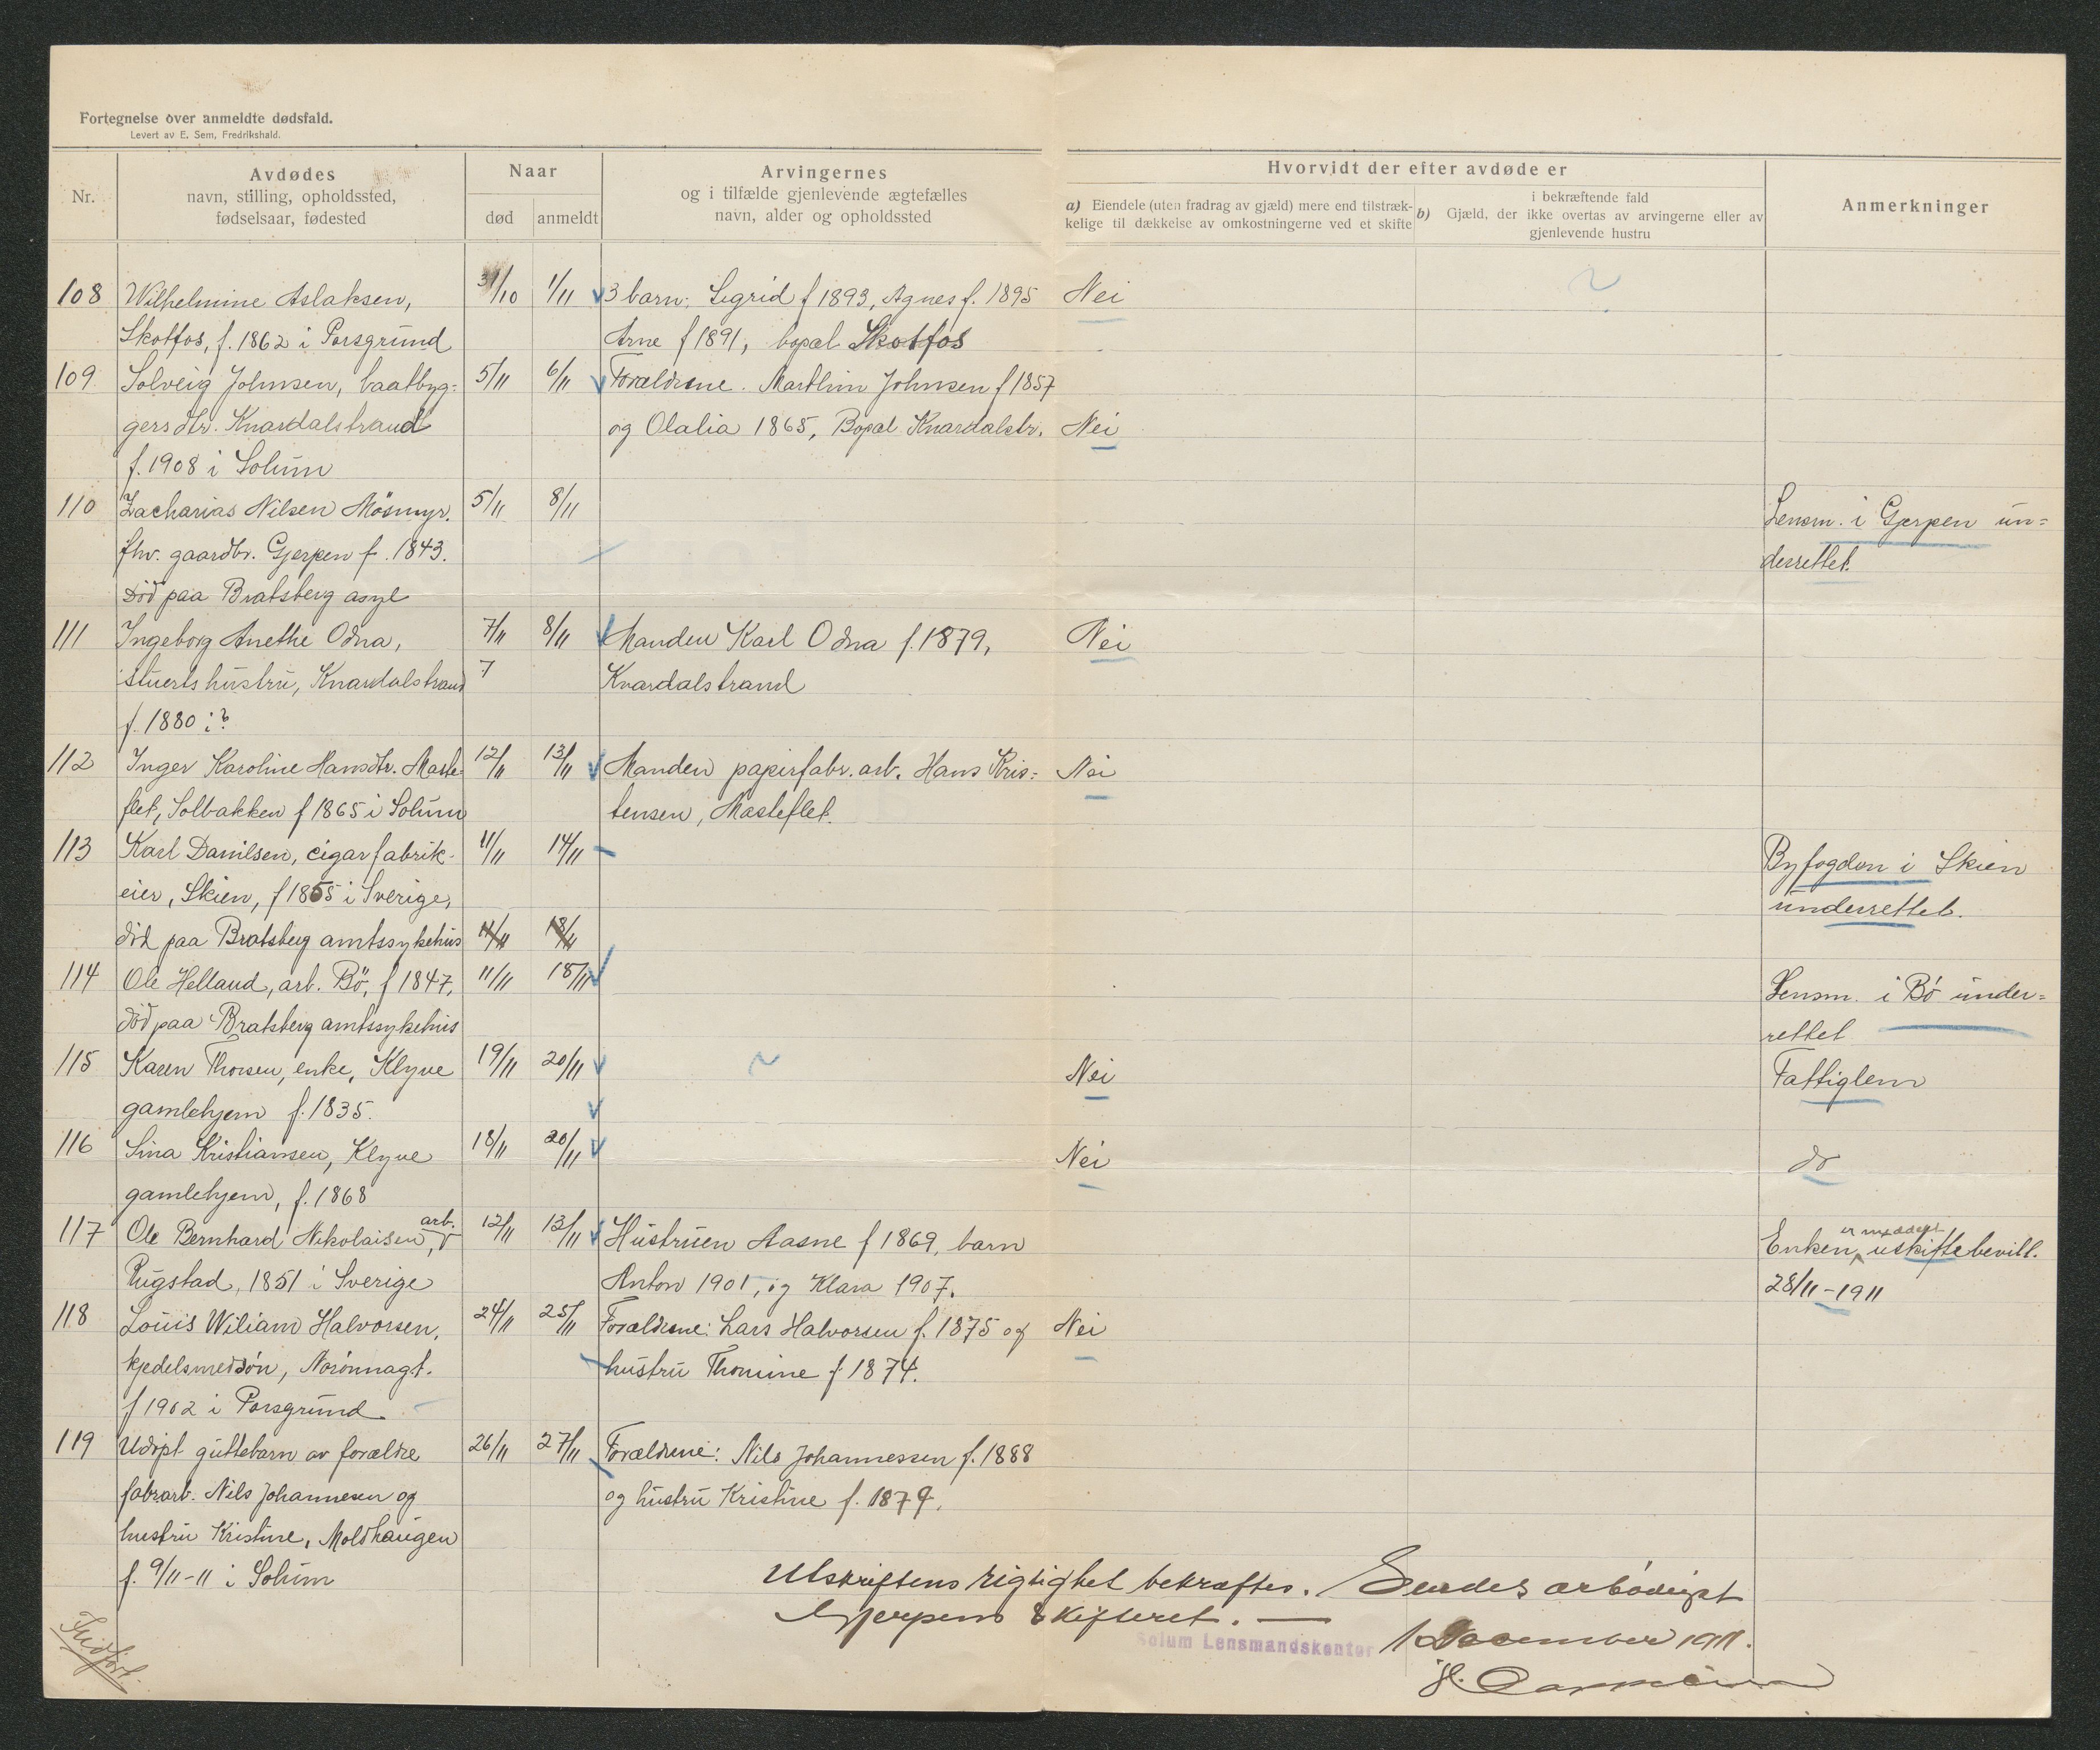 Fortegnelse over anmeldte dødsfald.
Levert av E. Sem, Fredrikshald.
Nr.
Avdødes
navn, stilling, opholdssted,
fødselsaar, fødested
Naar
død
anmeldt
Arvingernes
og i tilfælde gjenlevende ægtefælles
navn, alder og opholdssted
Hvorvidt der efter avdøde er
a) Eiendele (uten fradrag av gjæld) mere end tilstræk-
kelige til dækkelse av omkostningerne ved et skifte
i bekræftende fald
b) Gjæld, der ikke overtas av arvingerne eller av
gjenlevende hustru
Anmerkninger
108 Wilhelmine Aslaksen, 31/10 1/11 3 barn: Sigrid f 1893, Agnes f. 1895 Nei
Skotfos, f. 1862 i Porsgrund Arne f 1891, bopæl Skotfos
109 Solveig Johnsen, baatbyg= 5/11 6/11 Forældrene. Marthin Johnsen f 1857
gersdtr. Knardalstrand og Olalia 1865, Bopæl Knardalstr. Nei
f. 1908 i Solum
110 Zacharias Nilsen Mösmyr. 5/11 8/11 Lensm. i Gjerpen un=
fhv. gaardbr. Gjerpen f. 1843. derrettet.
Död paa Bratsberg asyl
111 Ingeborg Anethe Odna, 7/11 8/11 Manden Karl Odna f. 1879, Nei
stuerts hustru, Knardalstrand 7 Knardalstrand
f. 1880 i?
112 Inger Karoline Hansdtr. Maste= 12/11 13/11 Manden papirfabr. arb. Hans Kris= Nei
flet, Solbakken f 1865 i Solum tensen, Masteflet.
113 Karl Danilsen, cigarfabrik- 11/11 14/11 Byfogden i Skien
eier, Skien, f 1855 i Sverige, underrettet.
död paa Bratsberg amtssykehus 11/11 18/11
114 Ole Helland, arb. Bö, f 1847, 11/11 18/11 Lensm. i Bö under=
död paa Bratsberg amtssykehus rettet
115 Karen Thorsen, enke, Klyve 19/11 20/11 Nei Fattiglem
gamlehjem f. 1835.
116 Sina Kristiansen, Klyve 18/11 20/11 Nei do
gamlehjem, f. 1868
117 Ole Bernhard Nikolaisen, arb. 12/11 13/11 Hustruen Aasne f 1869, barn Enken er meddelt uskiftebevill.
Rugstad, 1851 i Sverige Anton 1901, og Klara 1907. 28/11-1911
118 Louis Wiliam Halvorsen, 24/11 25/11 Forældrene: Lars Halvorsen f. 1875 og Nei
kjedelsmedsön, Norönnagt. hustru Thomine f 1874.
f 1902 i Porsgrund
119 Udöpt guttebarn av forældre 26/11 27/11 Forældrene: Nils Johannessen f. 1888
fabrarb. Nils Johannesen og og hustru Kristine f. 1879.
hustru Kristine, Moldhaugen
f. 9/11-11 i Solum
Utskriftens rigtighet bekræftes. Sendes arbödigst
Gjerpens skifteret.
Solum Lensmandskontor 1 December 1911.
Indfört.